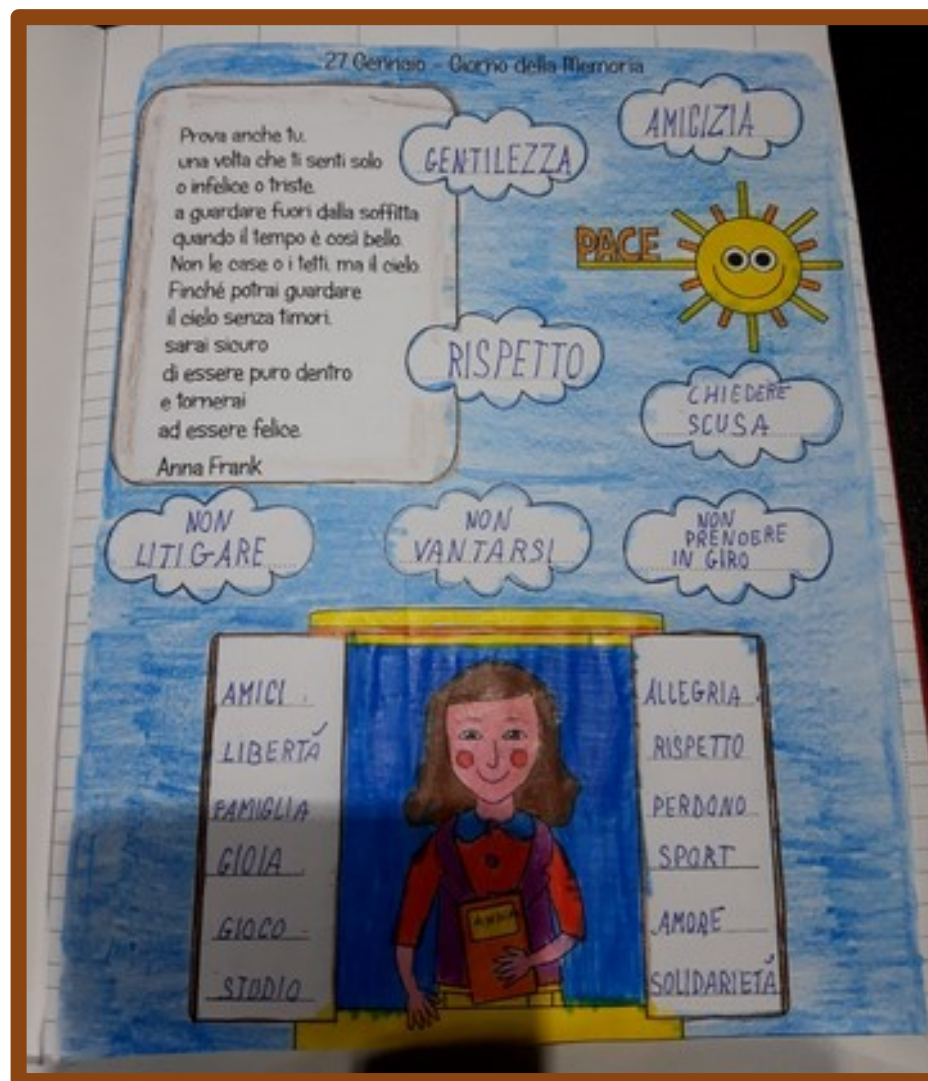 27 Gennaio - Giorno della Memoria
Prova anche tu,
una volta che ti senti solo
o infelice o triste,
a guardare fuori dalla soffitta
quando il tempo è così bello.
Non le case o i tetti, ma il cielo.
Finché potrai guardare
il cielo senza timori,
sarai sicuro
di essere puro dentro
e tornerai
ad essere felice.
Anna Frank
GENTILEZZA
AMICIZIA
PACE
RISPETTO
CHIEDERE
SCUSA
NON
LITIGARE
NON
VANTARSI
NON
PRENDERE
IN GIRO
AMICI
LIBERTÁ
FAMIGLIA
GIOIA
GIOCO
STUDIO
ANNA
ALLEGRIA
RISPETTO
PERDONO
SPORT
AMORE
SOLIDARIETÁ